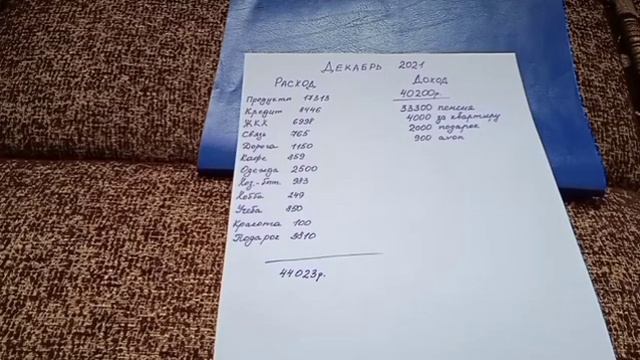 Декабрь 2021
Расход
Продукты 17313
Кредит 8446
ЖКХ 6998
Связь 765
Дорога 1150
Кафе 859
Одежда 2500
Хоз.-быт. 983
Хобби 249
Учеба 850
Красота 100
Подарог 3810
44023р.
Доход
40200р.
33300 пенсия
4000 за квартиру
2000 подарок
900 avon